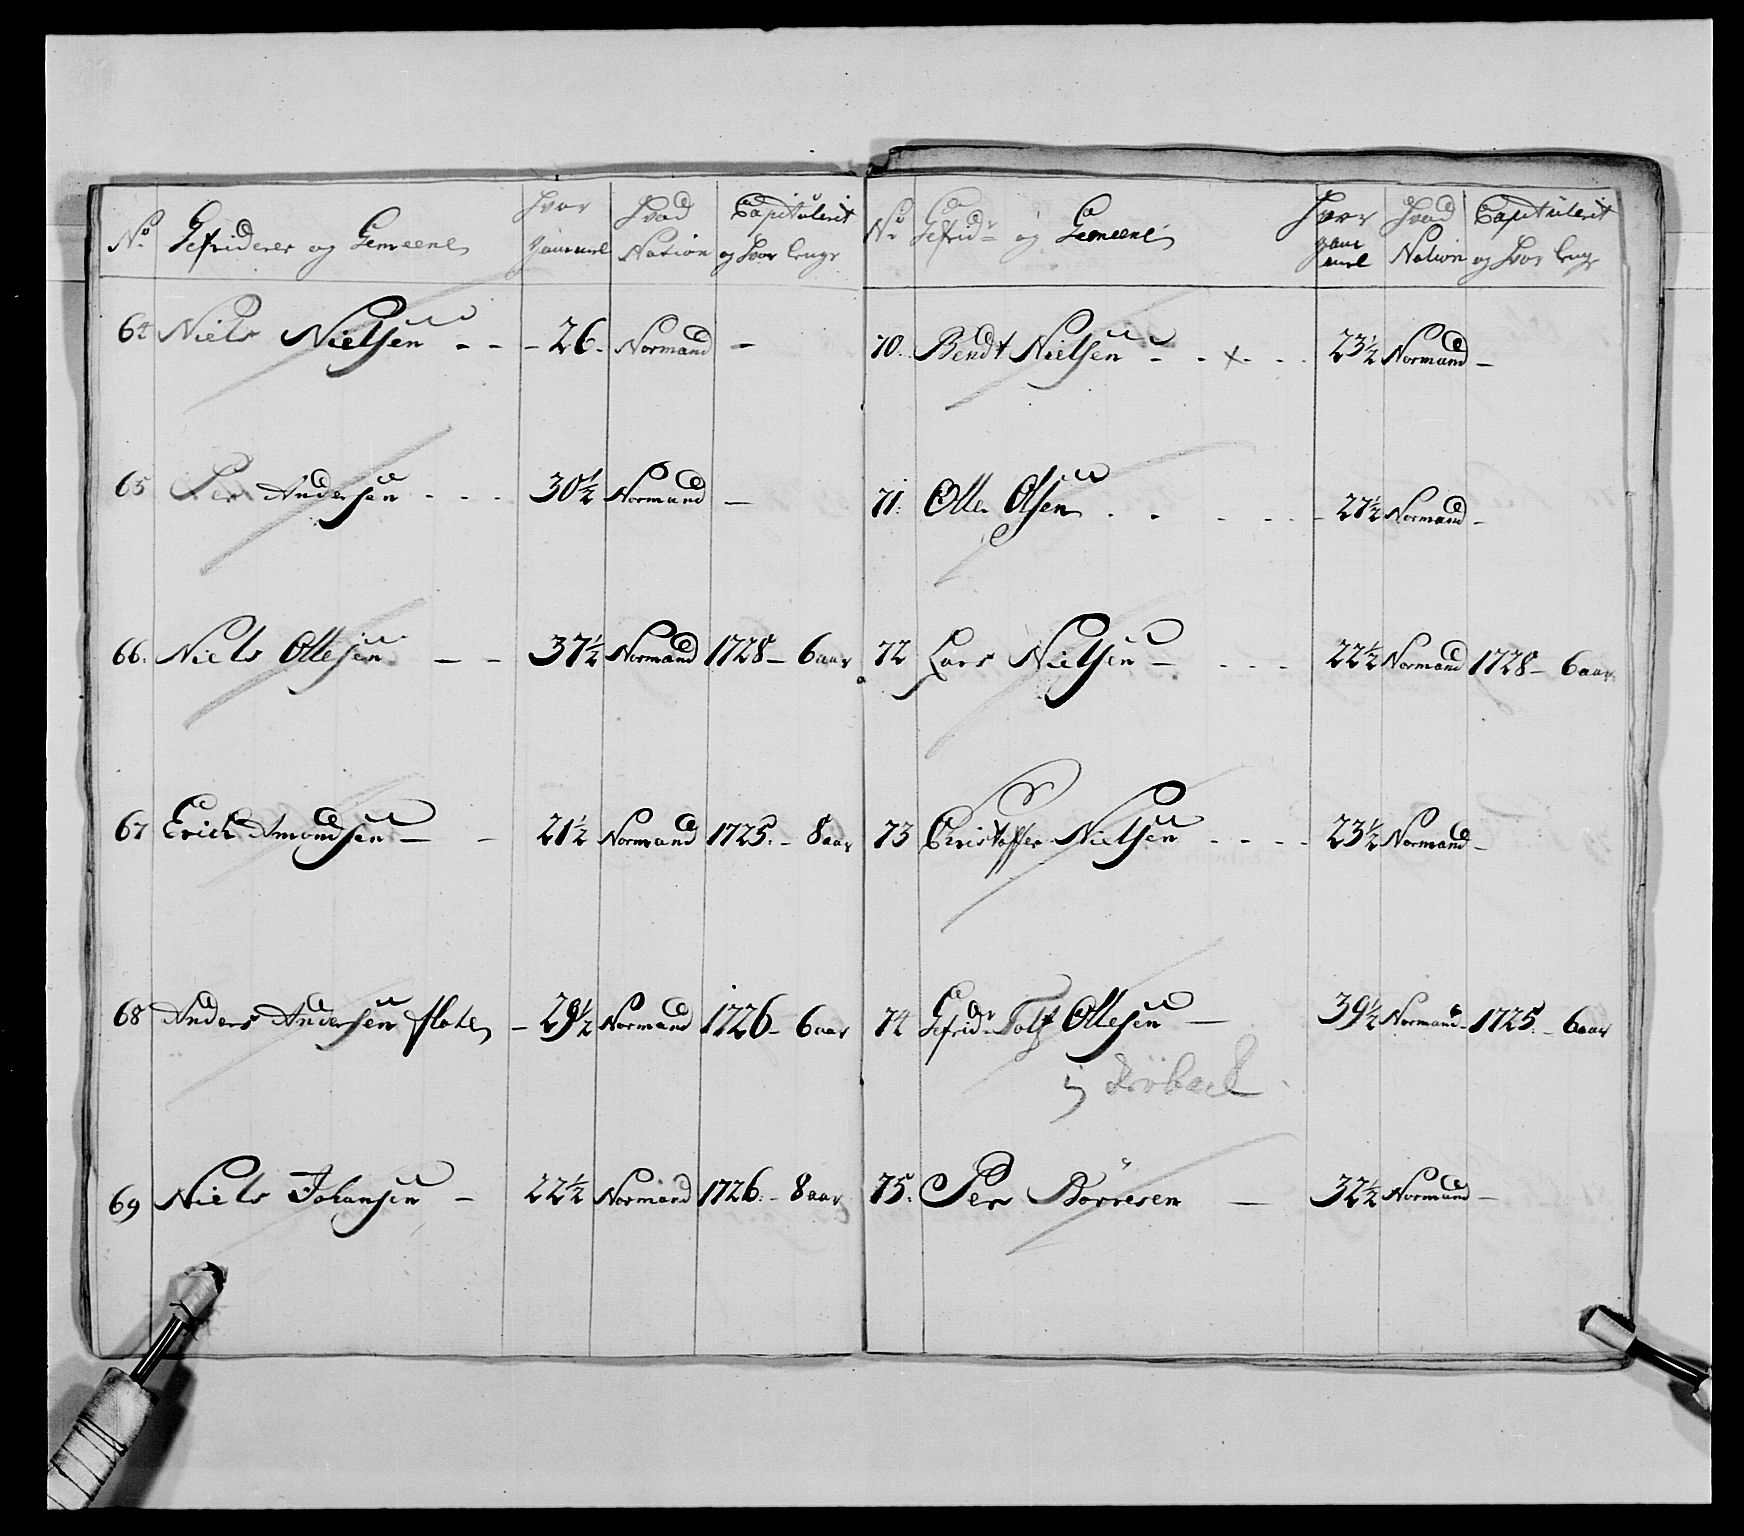 No Gefriderer og Gemeene Hvor gammel Hvad Nation Capitulerit og hvor lenge
64 Niels Nielsen - - - 26. Normand -
65 Per Andersen - - - 30½ Normand -
66. Niels Ollesen - - 37½ Normand 1728 - 6 aar
67 Erich Amondsen - - 21½ Normand 1725. - 8 aar
68 Anders Andersen flaten - 29½ Normand 1726 - 6 aar
69 Niels Johansen - 22½ Normand 1726. - 8 aar
No Gefridr og Gemeene Hvor gam mel Hvad Nation Capitulerit og hvor lenge
70. Bendt Nielsen - - x - - 23½ Normand -
71. Olle Olsen . - - - - 27½ Normand -
72 Lars Nielsen - - - - 22½ Normand 1728 - 6 aar
73 Christoffer Nielsen - - - - 23½ Normand -
74 Gefridr Tolf Ollesen - 39½ Normand - 1725. - 6 aar
i Dröback
75. Per Börresen - 32½ Normand -